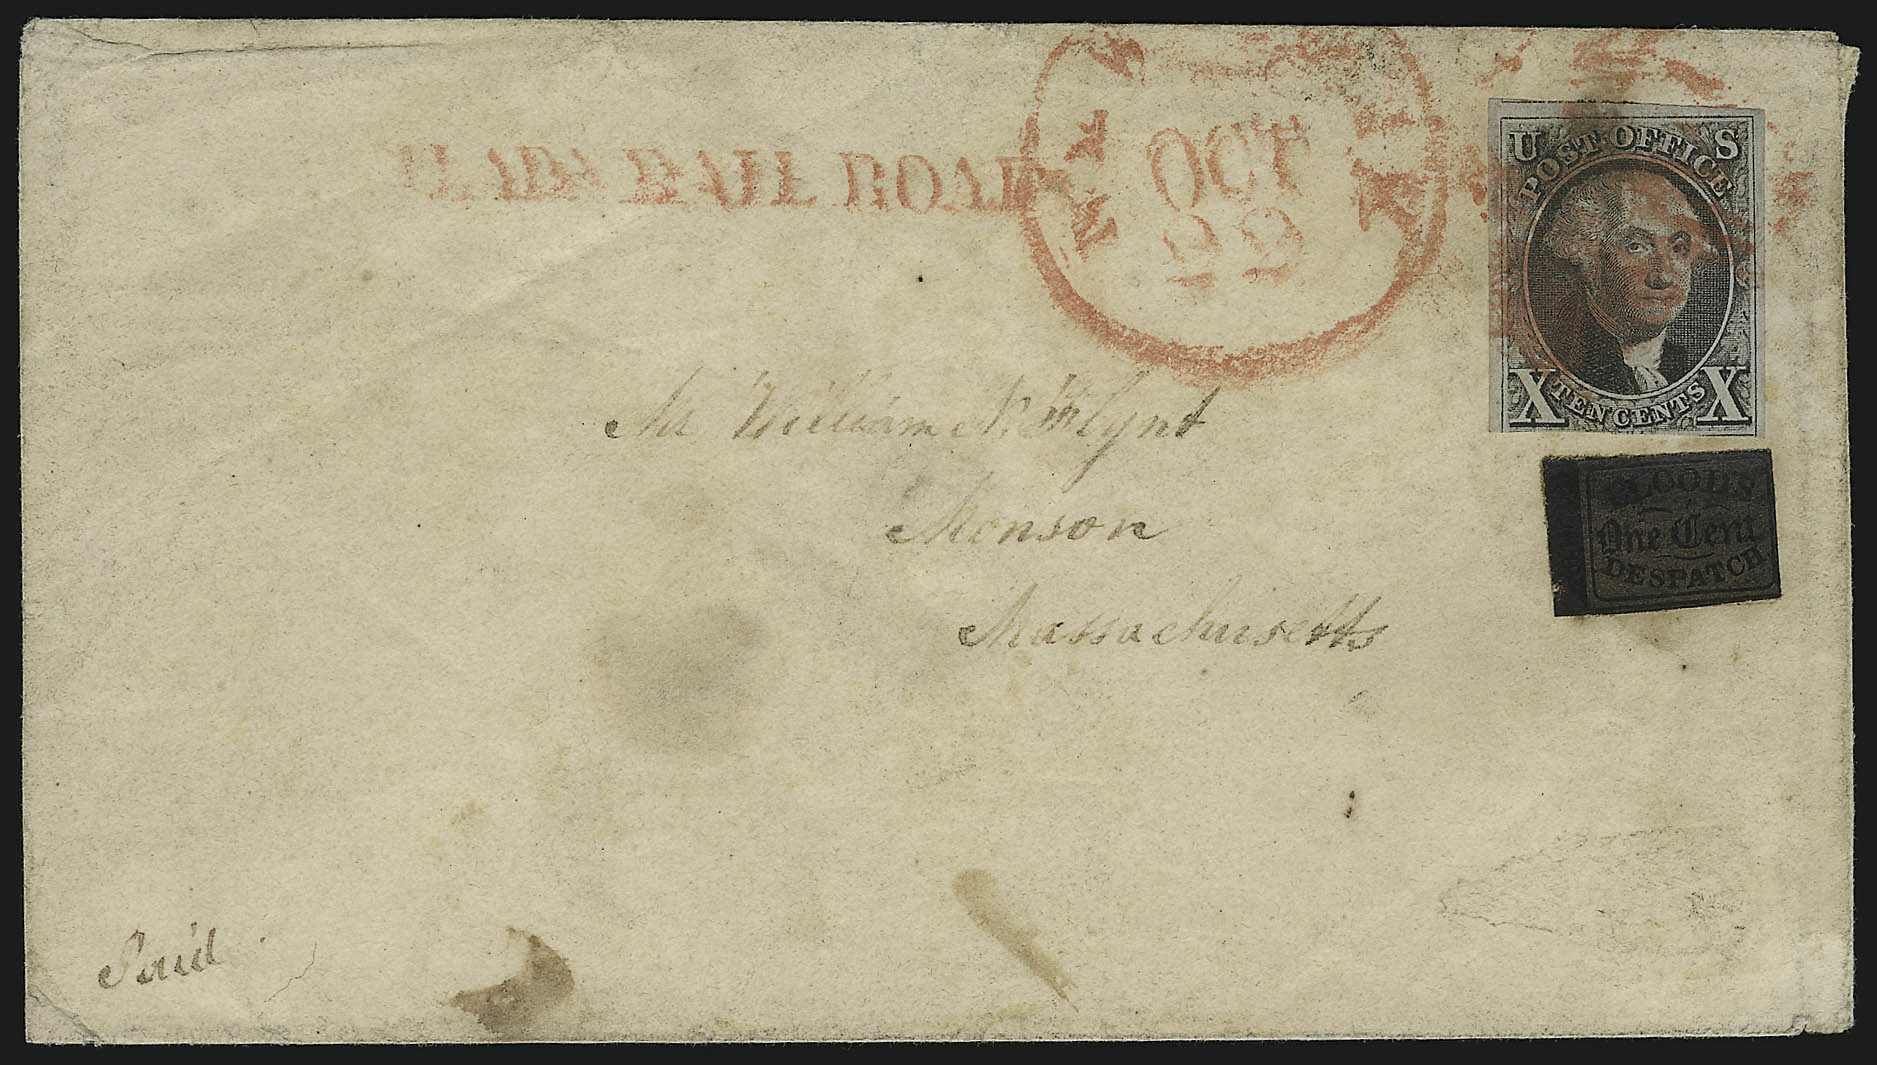 RAIL ROAD
OCT
22
U S
POST OFFICE
X TEN CENTS X
BLOOD'S
One Cent
DESPATCH
Mr William N. Flynt
Monson
Massachusetts
Paid